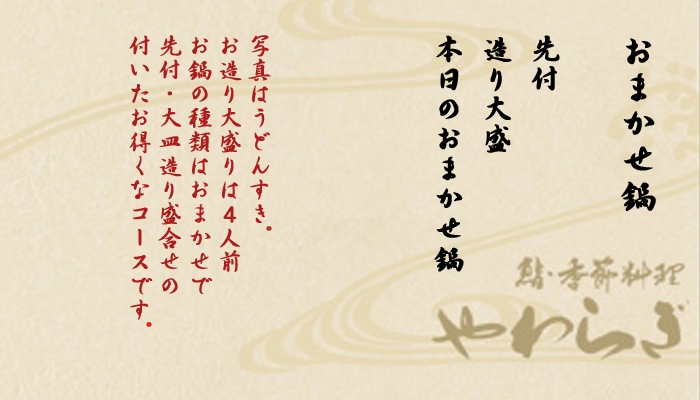 おまかせ鍋
先付
造り大盛
本日のおまかせ鍋
写真はうどんすき。
お造り大盛りは4人前
お鍋の種類はおまかせで
先付・大皿造り盛合せの
付いたお得くなコースです。
鮨・季節料理
やわらぎ